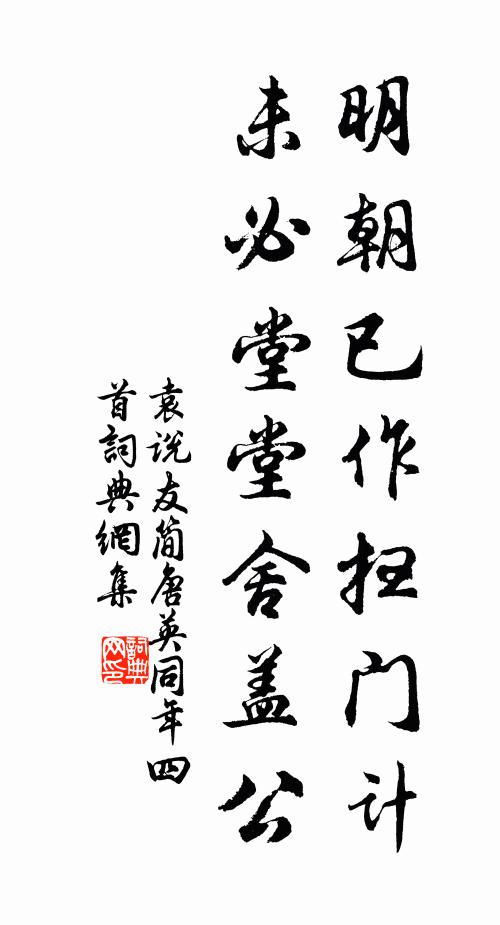 明朝已作扫门计
未必堂堂舍盖公
袁说友简唐英同年四
首詞典網集
詞典網印